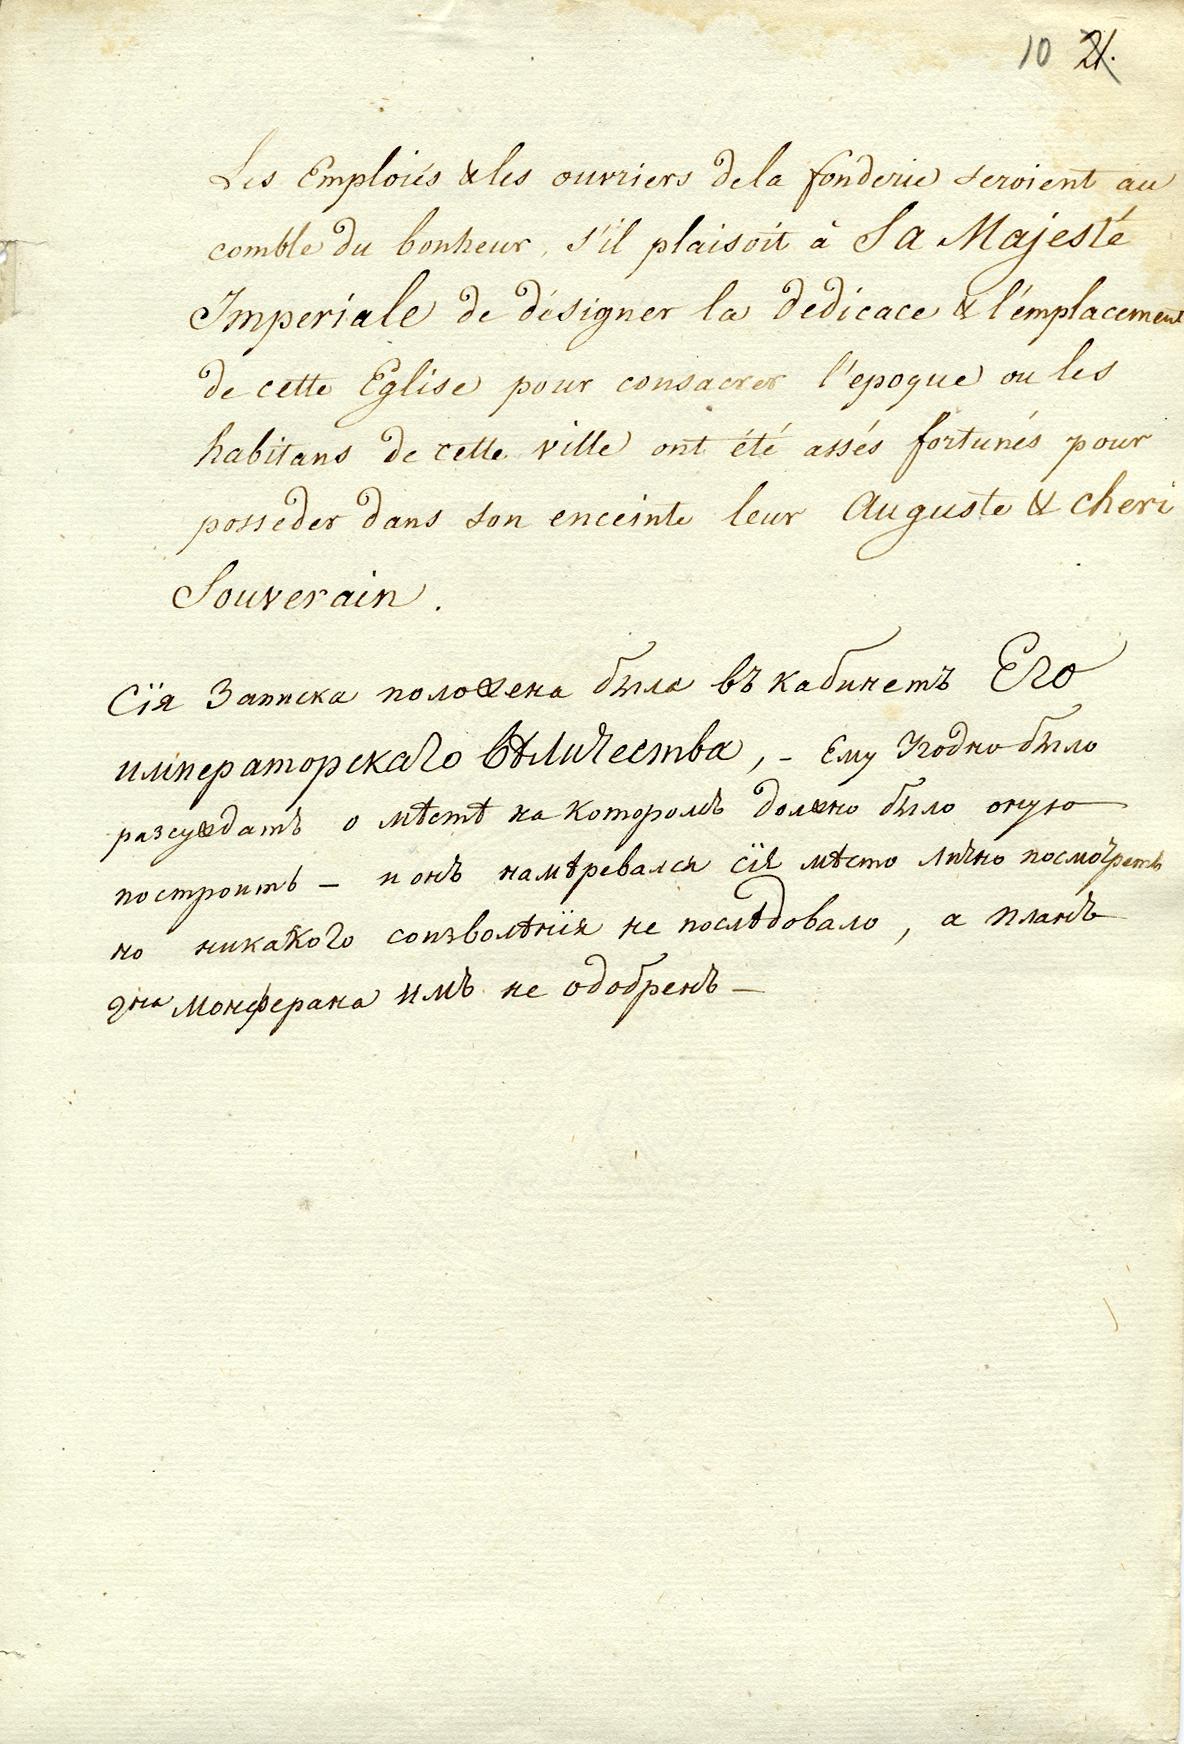 10 21.
Les Emploiés & les ouvriers de la fonderie seroient au
comble du bonheur, s'il plaisoit à Sa Majesté
Imperiale de désigner la dedicace & l'emplacement
de cette Eglise pour consacrer l'epoque ou les
habitans de cette ville ont été assés fortunés pour
posseder dans son enceinte leur Auguste & cheri
Souverain.
Сїя Записка положена была въ кабинетъ Его
императорскаго вѣличества, - Ему Угодно было
разсуждать о мѣстѣ на которомъ должно было оную
построить – и онъ намѣревался сїѣ мѣсто лично посмотреть
но никакого соизволѣнїя не послѣдовало, а планъ
гна монферана имъ не одобренъ –